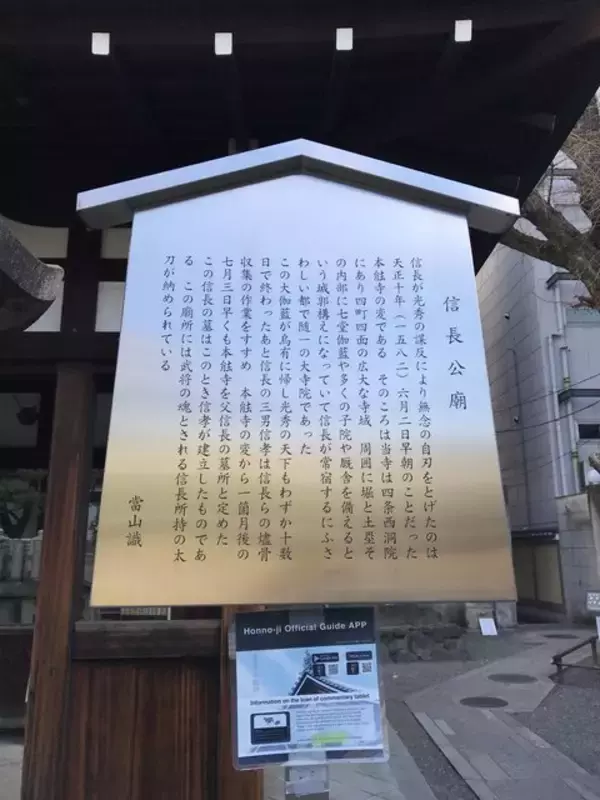 信長公廟
信長が光秀の謀反により無念の自刃をとげたのは
天正十年（一五八二）六月二日早朝のことだった
本能寺の変である　そのころは当寺は四条西洞院
にあり四町四面の広大な寺域　周囲に堀と土塁そ
の内部に七堂伽藍や多くの子院や厩舎を備えると
いう城郭構えになっていて信長が常宿するにふさ
わしい都で随一の大寺院であった
この大伽藍が烏有に帰し光秀の天下もわずか十数
日で終わったあと信長の三男信孝は信長らの燼骨
収集の作業をすすめ　本能寺の変から一箇月後の
七月三日早くも本能寺を父信長の墓所と定めた
この信長の墓はこのとき信孝が建立したものであ
る　この廟所には武将の魂とされる信長所持の太
刀が納められている
當山識
Honno-ji Official Guide APP
Information on the loan of commentary tablet